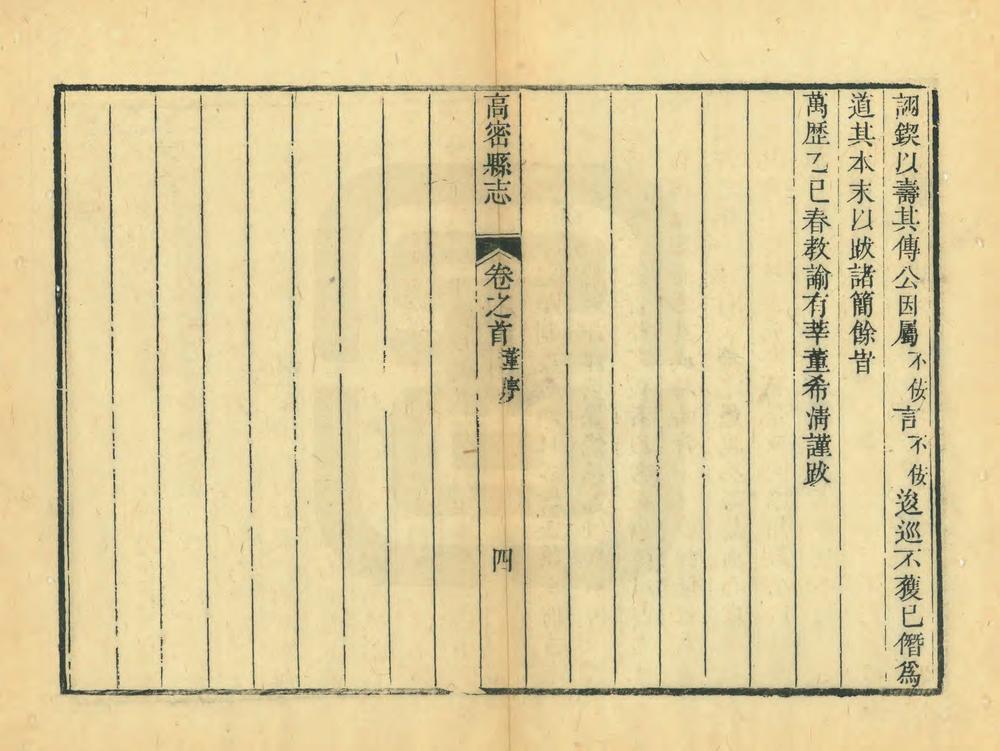 詡鍥以壽其傳公因屬不佞言不佞逡巡不獲已僭爲
道其本末以跋諸簡餘旹
萬歷乙巳春教諭有莘董希淸謹跋
高密縣志
卷之首
董序
四